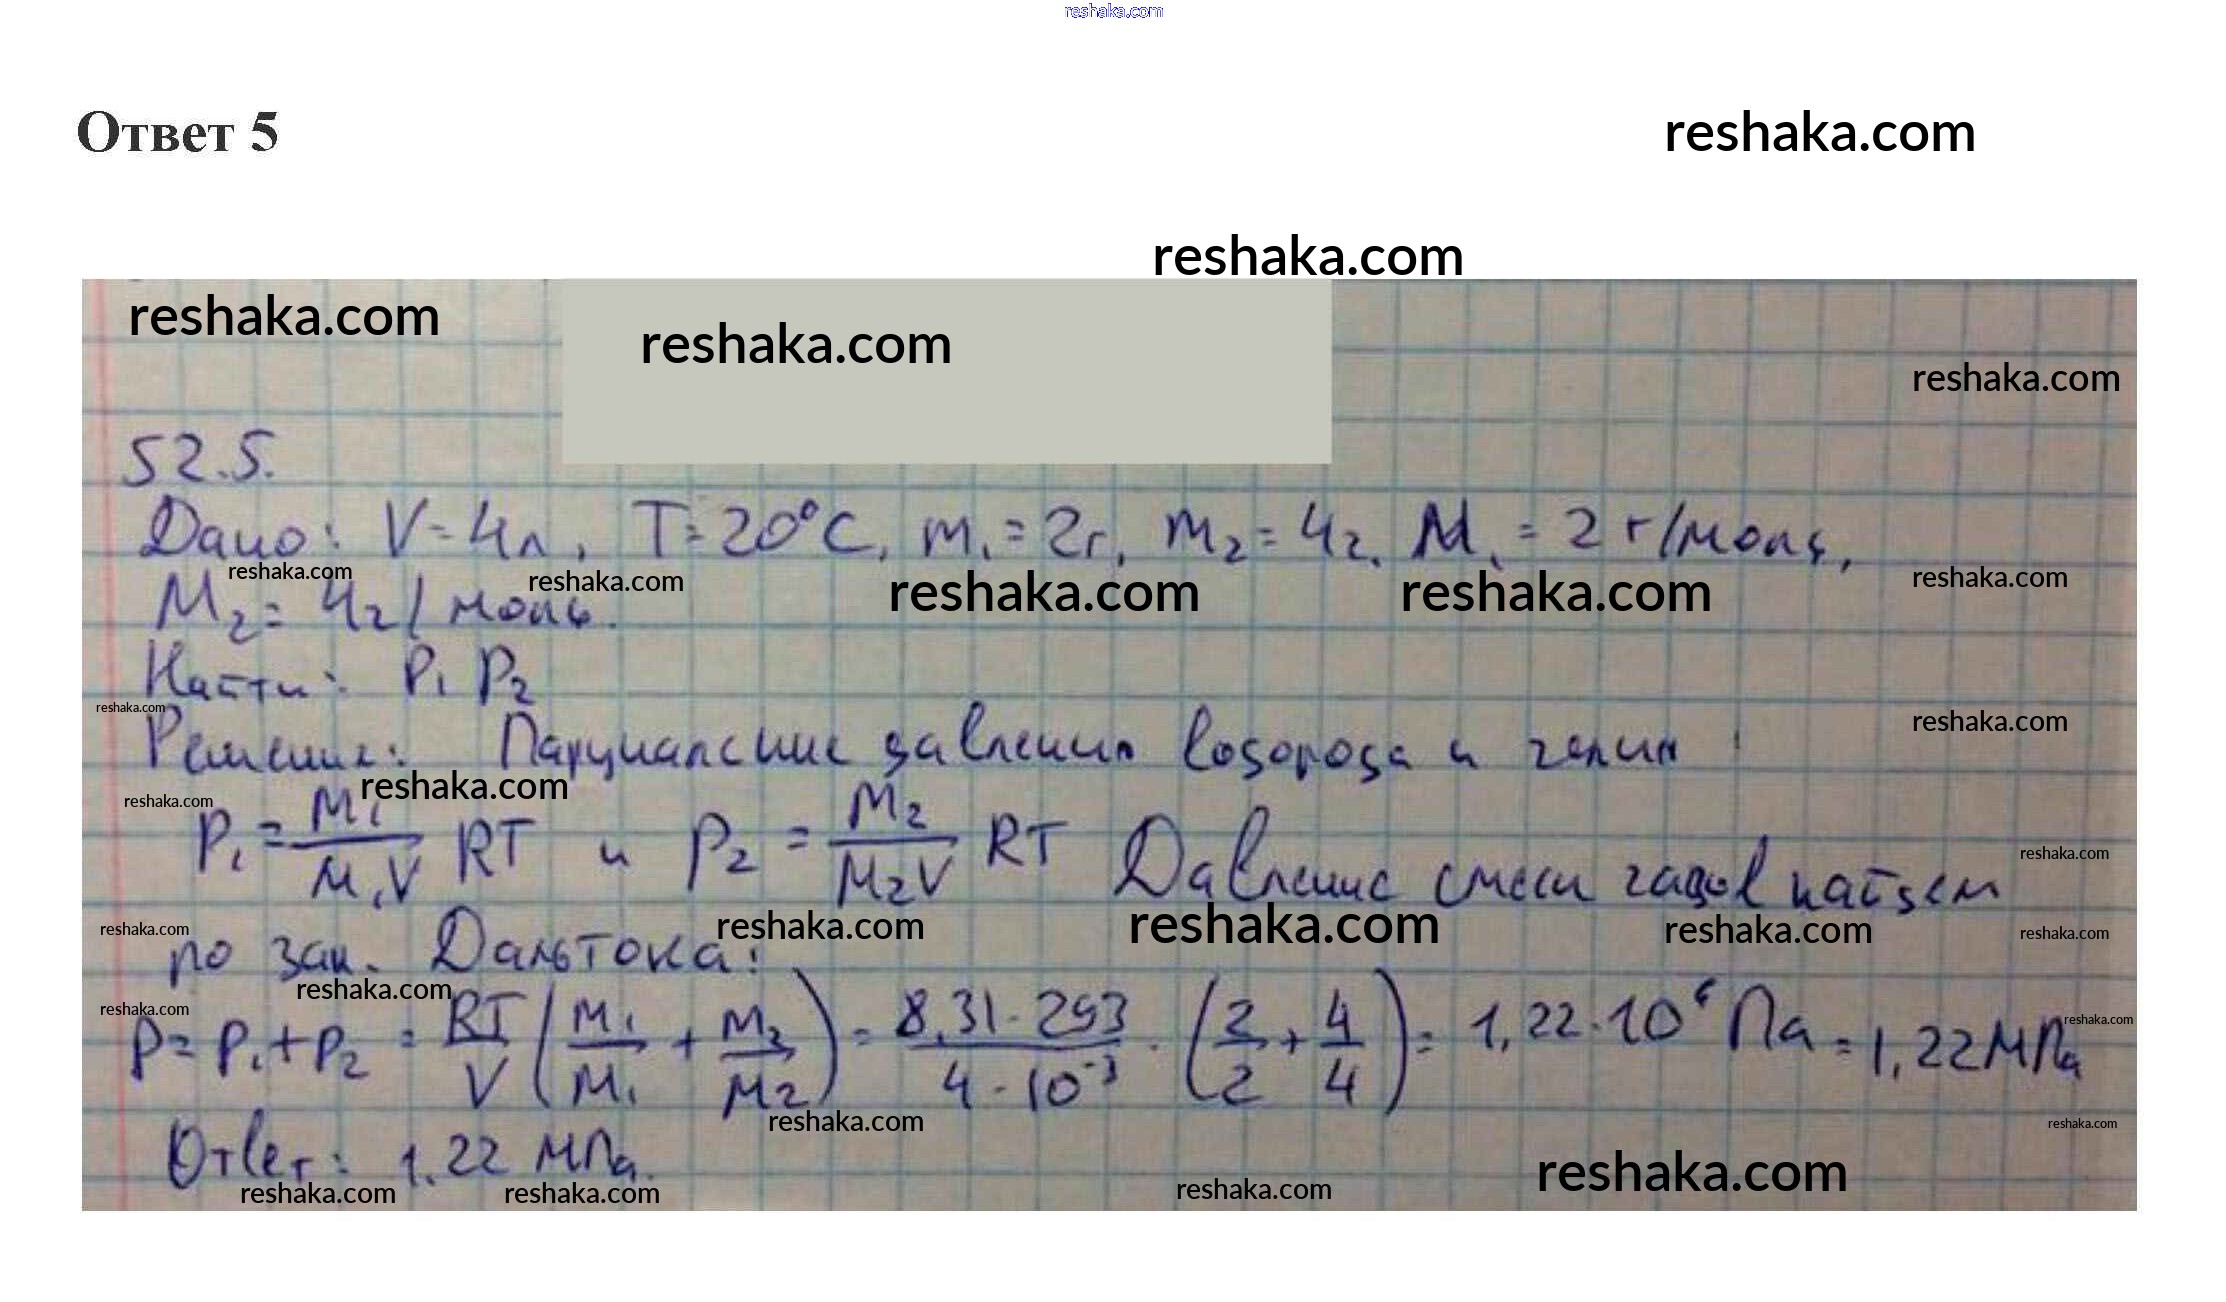 reshaka.com
Ответ 5
reshaka.com
reshaka.com
reshaka.com
reshaka.com
reshaka.com
52.5.
Дано: V = 4л, T = 20°C, m₁ = 2г, m₂ = 4г. M₁ = 2 г/моль,
reshaka.com reshaka.com reshaka.com reshaka.com reshaka.com
M₂ = 4г/моль.
Найти: P₁ P₂
reshaka.com reshaka.com
Решение: Парциальные давления водорода и гелия:
reshaka.com reshaka.com
P₁ = M₁/M₁V RT и P₂ = M₂/M₂V RT Давление смеси газов найдем
reshaka.com
reshaka.com reshaka.com reshaka.com reshaka.com reshaka.com
по зак. Дальтона:
reshaka.com
reshaka.com reshaka.com
P = P₁ + P₂ = RT/V (M₁/M₁ + M₂/M₂) = 8,31·293/4·10⁻³ · (2/2 + 4/4) = 1,22·10⁶ Па = 1,22 МПа
reshaka.com reshaka.com
Ответ: 1,22 МПа.
reshaka.com reshaka.com reshaka.com reshaka.com